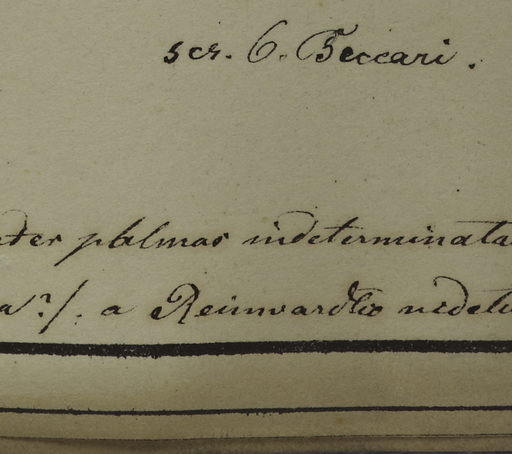 scr. O. Beccari.
inter palmas indeterminata
a?/. a Reinwardtio